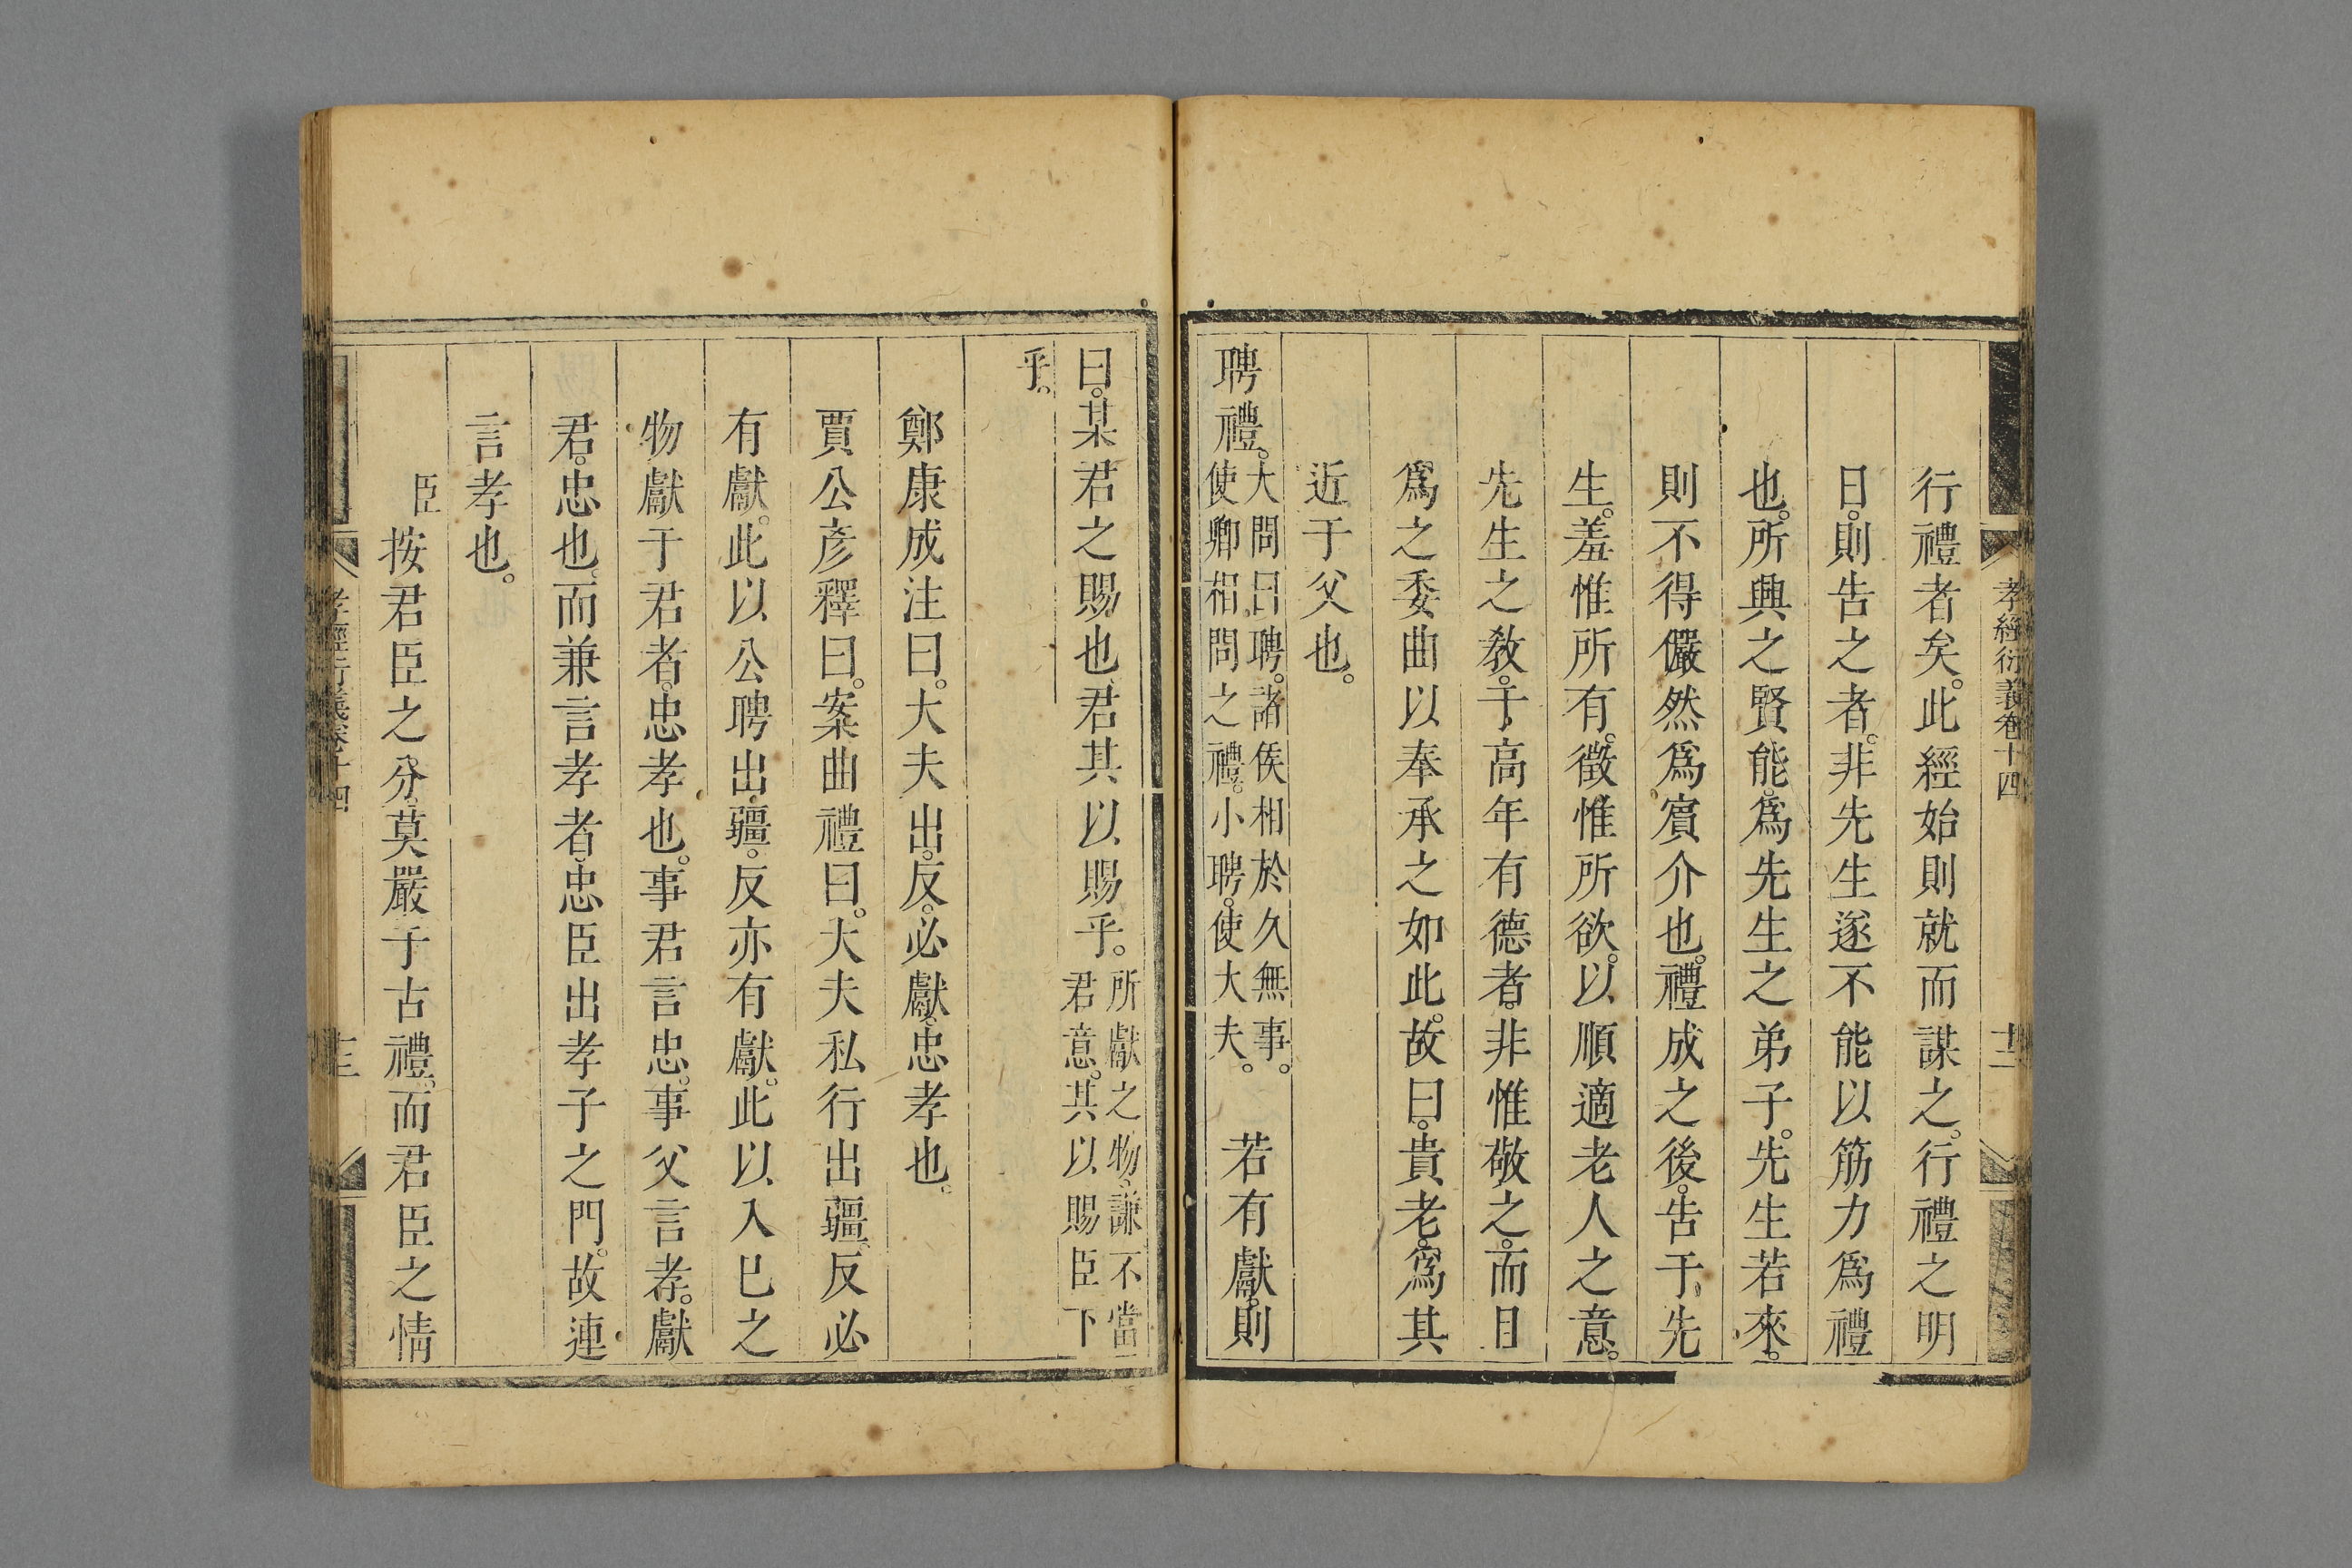 孝經衍義卷十四
十二
行禮者矣。此經始則就而謀之。行禮之明
日。則告之者。非先生遂不能以筋力爲禮
也。所興之賢能。爲先生之弟子。先生若來。
則不得儼然爲賓介也。禮成之後。告于先
生。羞惟所有。徵惟所欲。以順適老人之意。
先生之教。于高年有德者。非惟敬之。而目
爲之委曲以奉承之如此。故曰。貴老。爲其
近于父也。
聘禮。大問曰聘。諸侯相於久無事。使卿相問之禮。小聘。使大夫。若有獻。則
曰。某君之賜也。君其以賜乎。所獻之物。謙不當君意。其以賜臣下
乎。
鄭康成注曰。大夫出。反。必獻。忠孝也。
賈公彥釋曰。案曲禮曰。大夫私行出疆。反必
有獻。此以公聘出疆。反亦有獻。此以入巳之
物獻于君者。忠孝也。事君言忠。事父言孝。獻
君。忠也。而兼言孝者。忠臣出孝子之門。故連
言孝也。
臣按君臣之分。莫嚴于古禮。而君臣之情
孝經衍義卷十四
十三